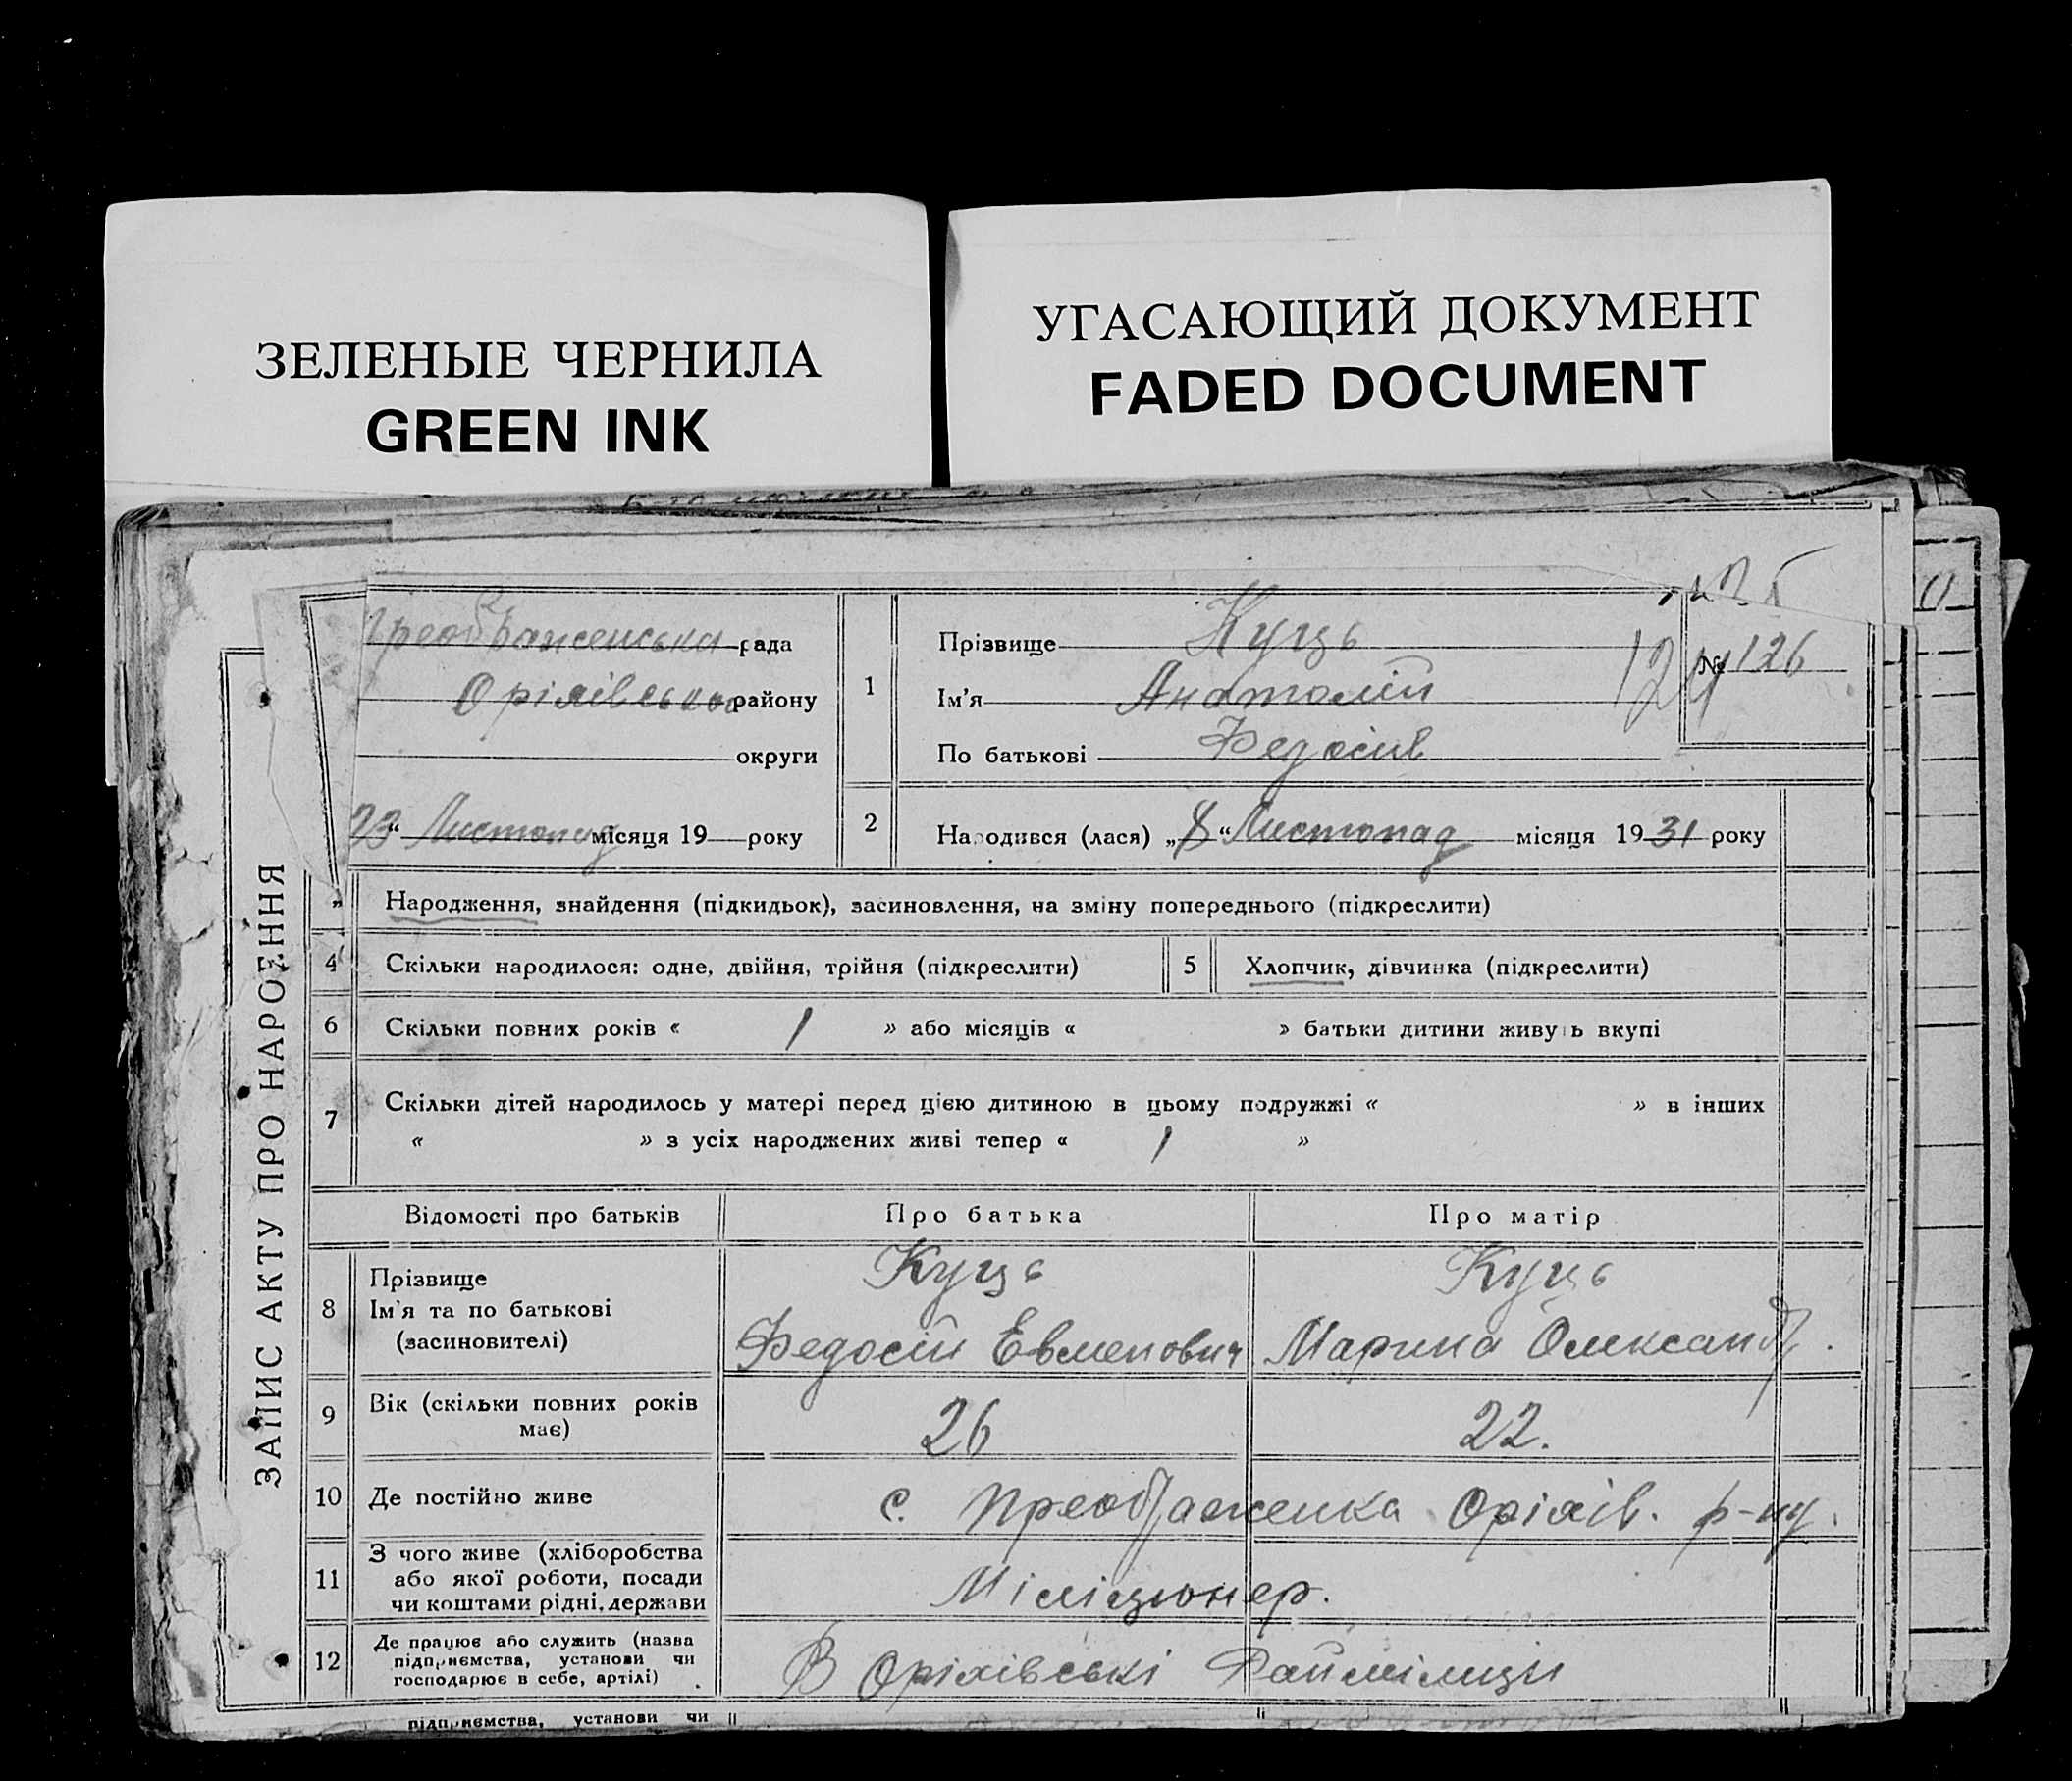 ЗЕЛЕНЫЕ ЧЕРНИЛА
GREEN INK
УГАСАЮЩИЙ ДОКУМЕНТ
FADED DOCUMENT
ЗАПИС АКТУ ПРО НАРОДЖЕННЯ
Преображенська рада
Оріхівсько району
округи
23 “ Листопад місяця 19 року
1
Прізвище Куць
Ім’я Анатолій
По батькові Федосів
124
№ 126
2
Народився (лася) „ 8 “ Листопад місяця 19 31 року
Народження, знайдення (підкидьок), засиновлення, на зміну попереднього (підкреслити)
4 Скільки народилося: одне, двійня, трійня (підкреслити) 5 Хлопчик, дівчинка (підкреслити)
6 Скільки повних років « 1 » або місяців « » батьки дитини живуть вкупі
7 Скільки дітей народилось у матері перед цією дитиною в цьому подружжі « » в інших
« » з усіх народжених живі тепер « 1 »
Відомості про батьків Про батька Про матір
8 Прізвище Куць Куць
Ім’я та по батькові
(засиновителі) Федосій Евменович Марина Олександр.
9 Вік (скільки повних років
має) 26 22.
10 Де постійно живе с. Преображенка Оріхів. р-ну.
11 З чого живе (хліборобства
або якої роботи, посади
чи коштами рідні, держави Міліціонер.
12 Де працює або служить (назва
підприємства, установи чи
господарює в себе, артілі) В Оріхівські Райміліціи
підприємства, установи чи